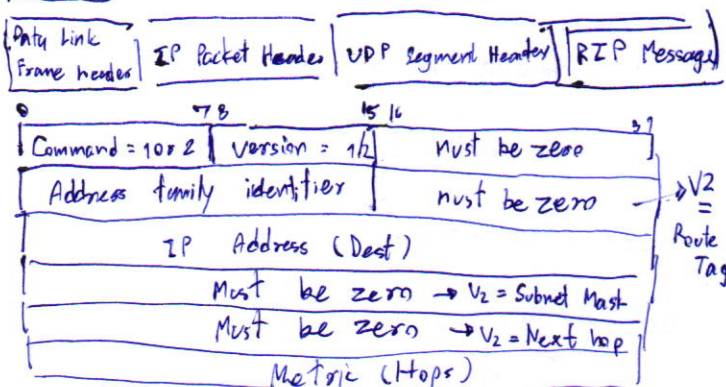 Data Link Frame header | IP Packet Header | UDP Segment Header | RIP Message
0 7 8 15 16 31
Command = 1 or 2 | Version = 1/2 | Must be zero
Address family identifier | must be zero → V2 = Route Tag
IP Address (Dest)
Must be zero → V2 = Subnet Mast
Must be zero → V2 = Next hop
Metric (Hops)